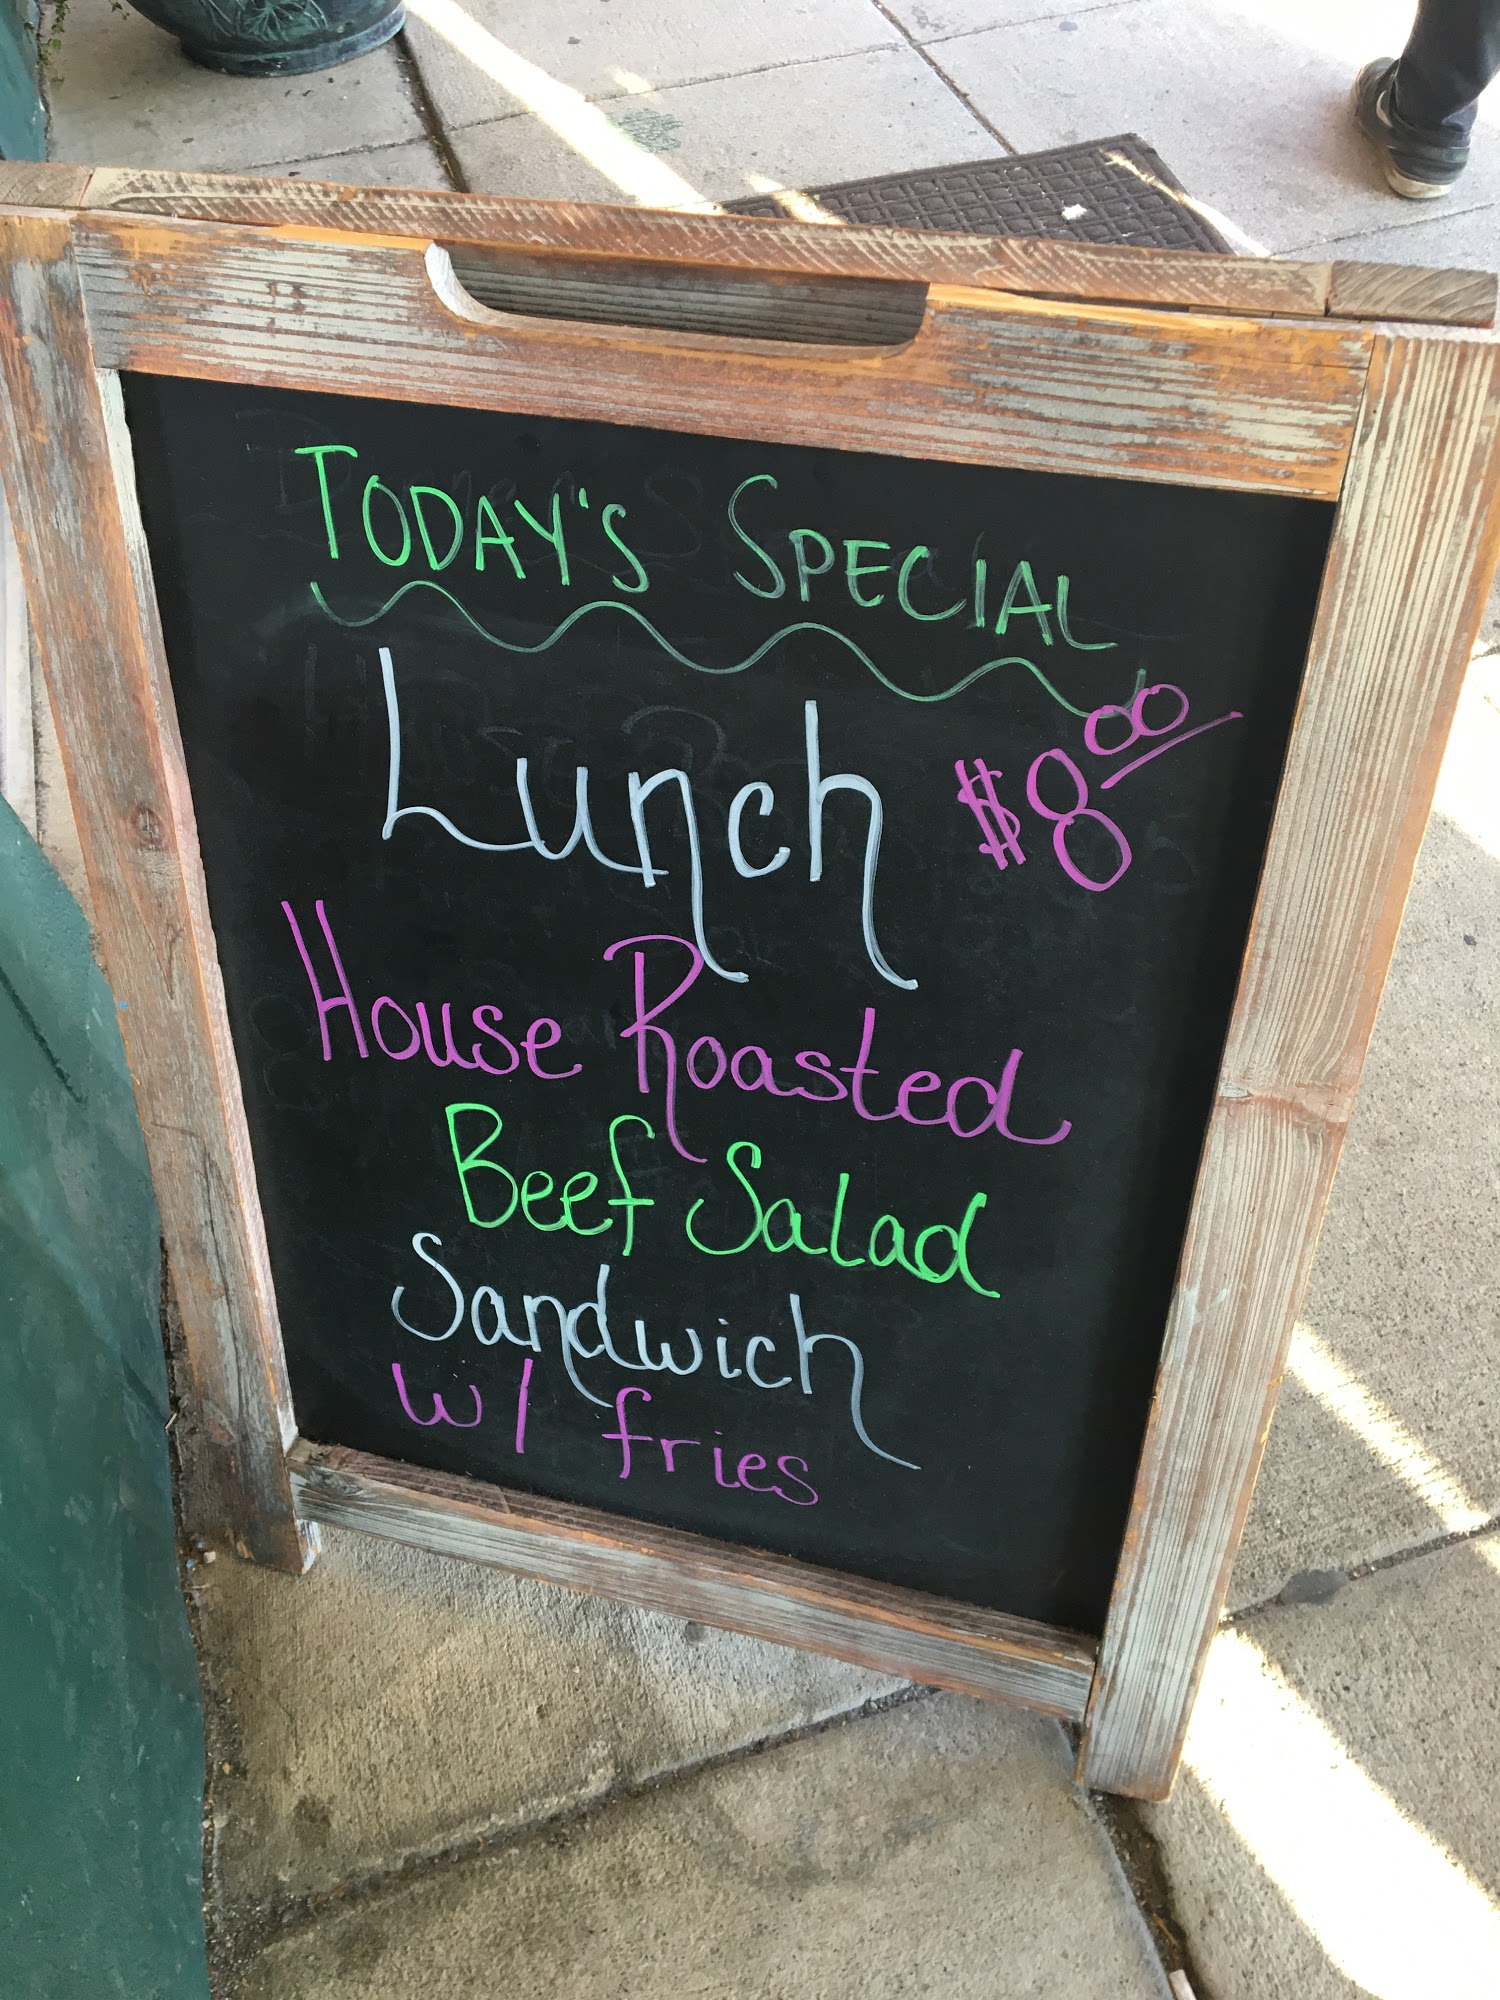 TODAY'S SPECIAL
Lunch $8.00
House Roasted
Beef Salad
Sandwich
w/ fries